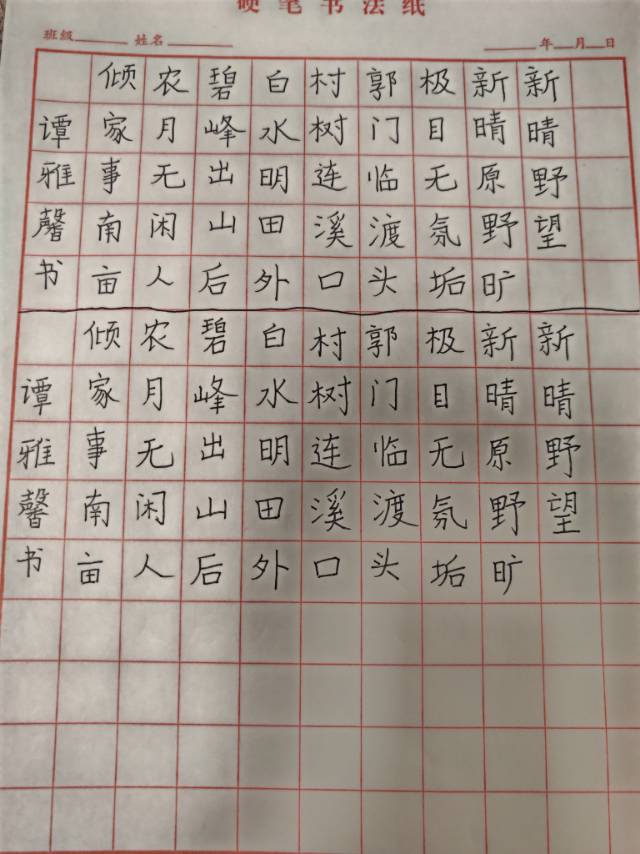 硬笔书法纸
班级______ 姓名______ ______年___月___日
新晴野望
新晴原野旷
极目无氛垢
郭门临渡头
村树连溪口
白水明田外
碧峰出山后
农月无闲人
倾家事南亩
谭雅馨书
新晴野望
新晴原野旷
极目无氛垢
郭门临渡头
村树连溪口
白水明田外
碧峰出山后
农月无闲人
倾家事南亩
谭雅馨书